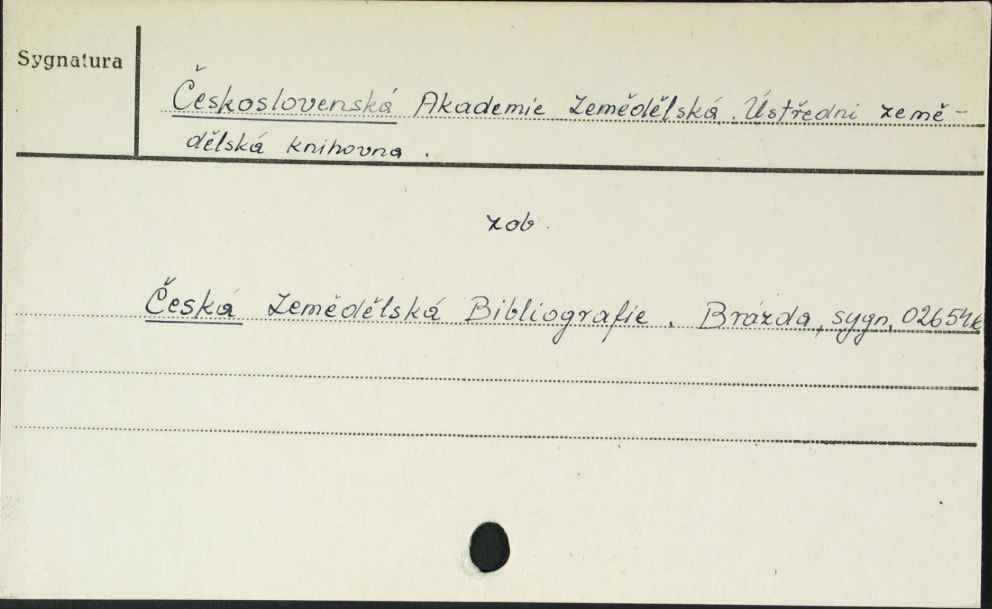 Sygnatura
Československá Akademie Zemědělská. Ústředni země-
dělská knihovna.
zob.
Česká Zemědělská Bibliografie. Brázda, sygn.